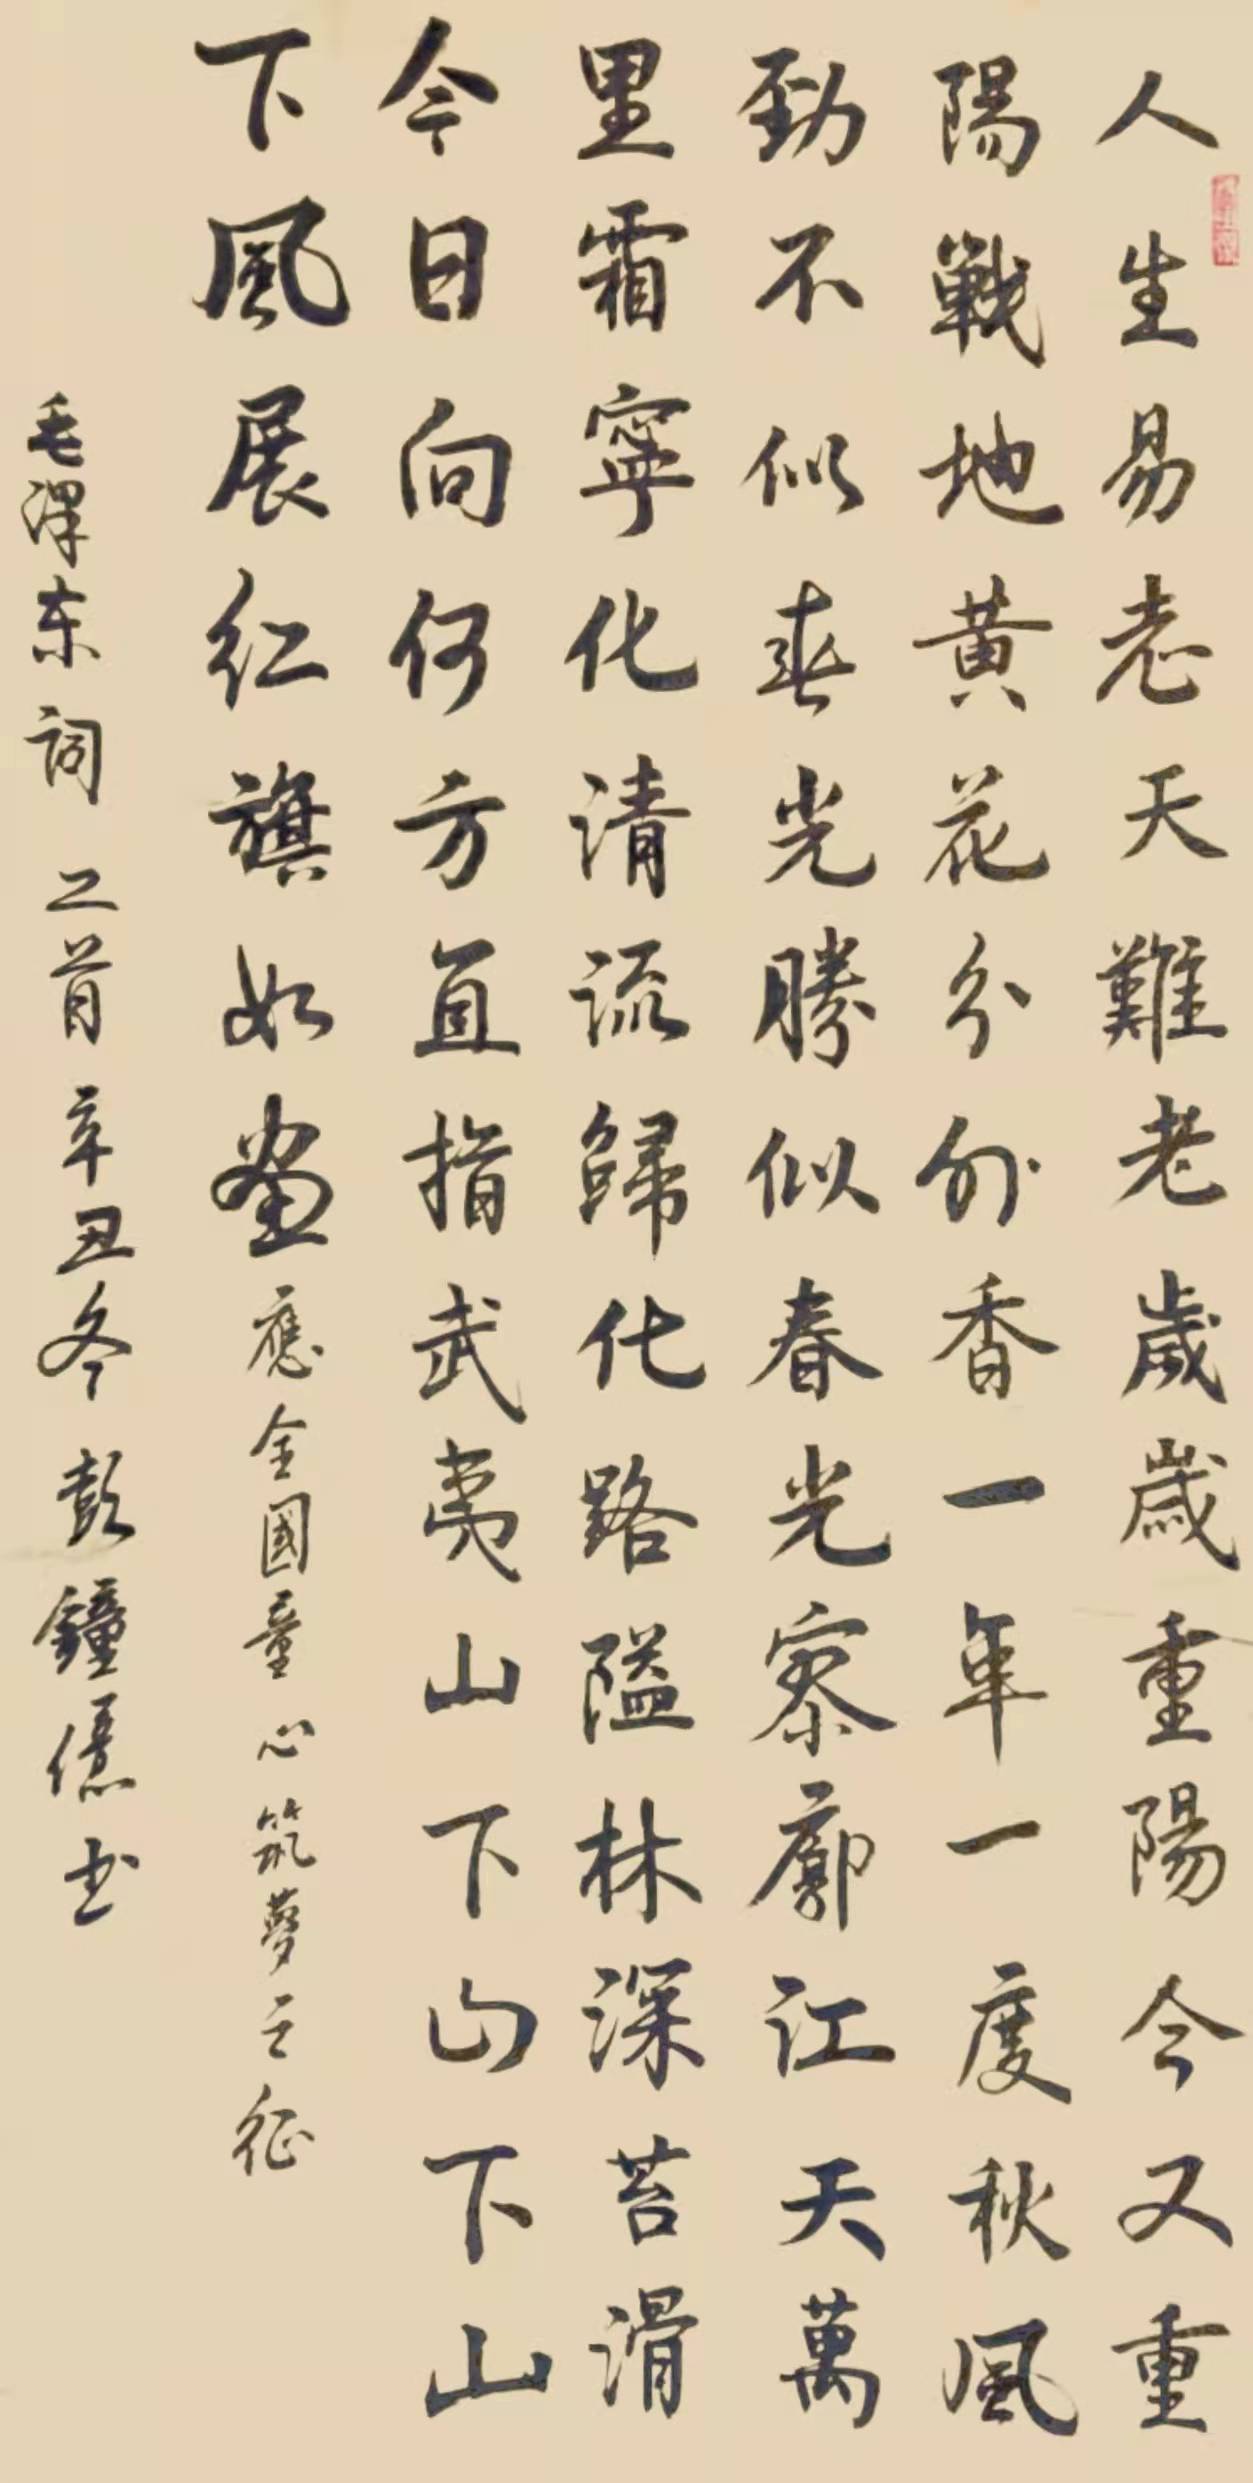 人生易老天難老歲歲重陽今又重
陽戰地黄花分外香一年一度秋風
勁不似春光勝似春光寥廓江天萬
里霜寧化清流歸化路隘林深苔滑
今日向何方直指武夷山下山下山
下風展紅旗如畫應全國童心筑夢之征
毛澤东詞二首辛丑冬彭鐘億书